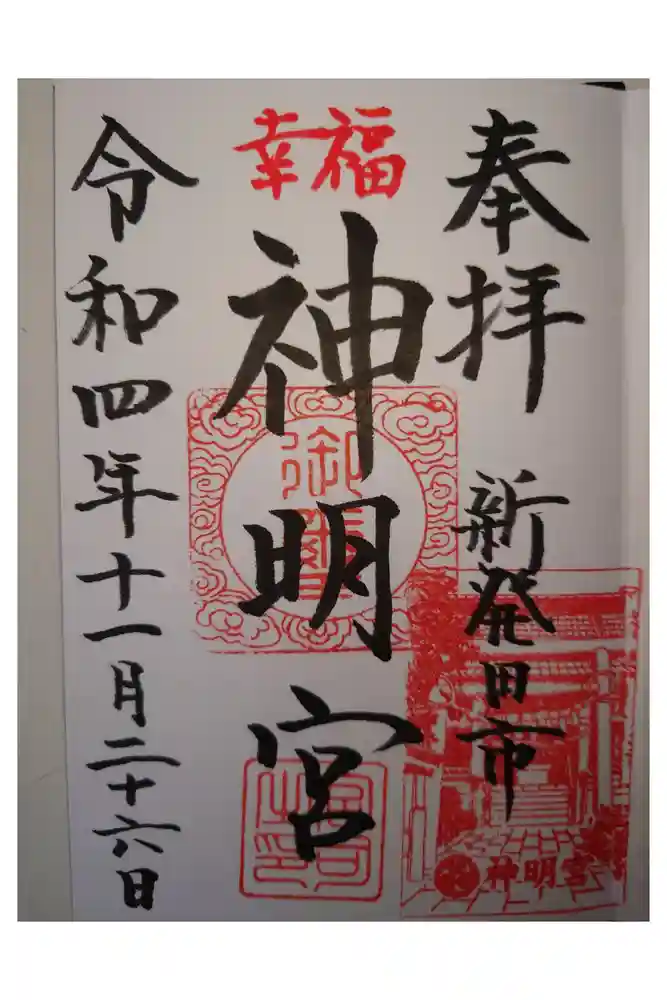 奉拝
新発田市
神明宮
幸福
神明宮
令和四年十一月二十六日